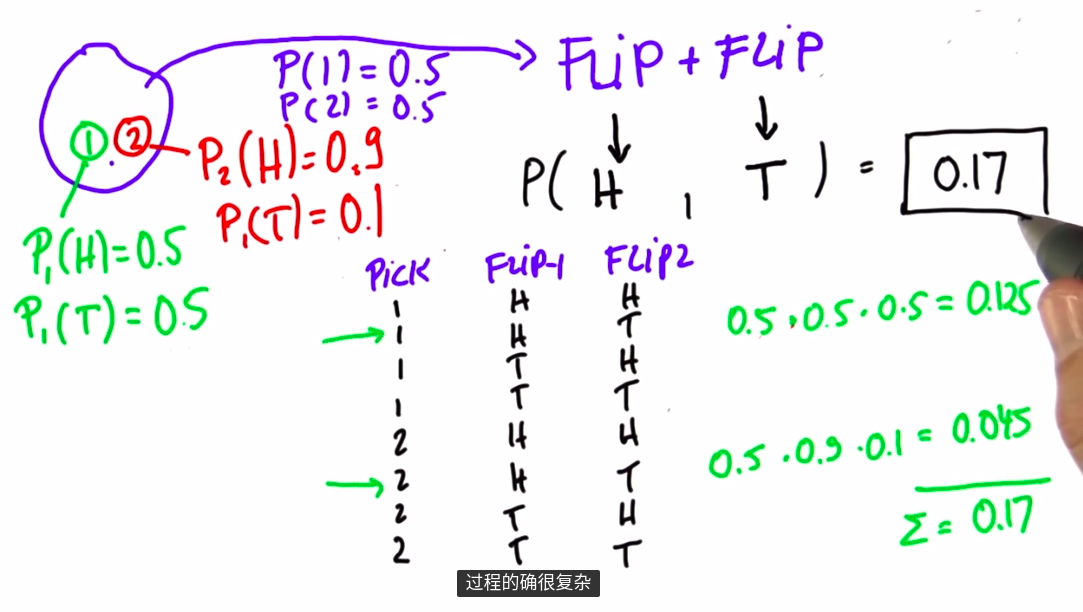 P(1) = 0.5
P(2) = 0.5
FLIP + FLIP
1
2
P₂(H) = 0.9
P₁(T) = 0.1
P₁(H) = 0.5
P₁(T) = 0.5
P( H , T ) = 0.17
PICK FLIP-1 FLIP2
1 H H
1 H T
1 T H
1 T T
2 H H
2 H T
2 T H
2 T T
0.5 · 0.5 · 0.5 = 0.125
0.5 · 0.9 · 0.1 = 0.045
Σ = 0.17
过程的确很复杂